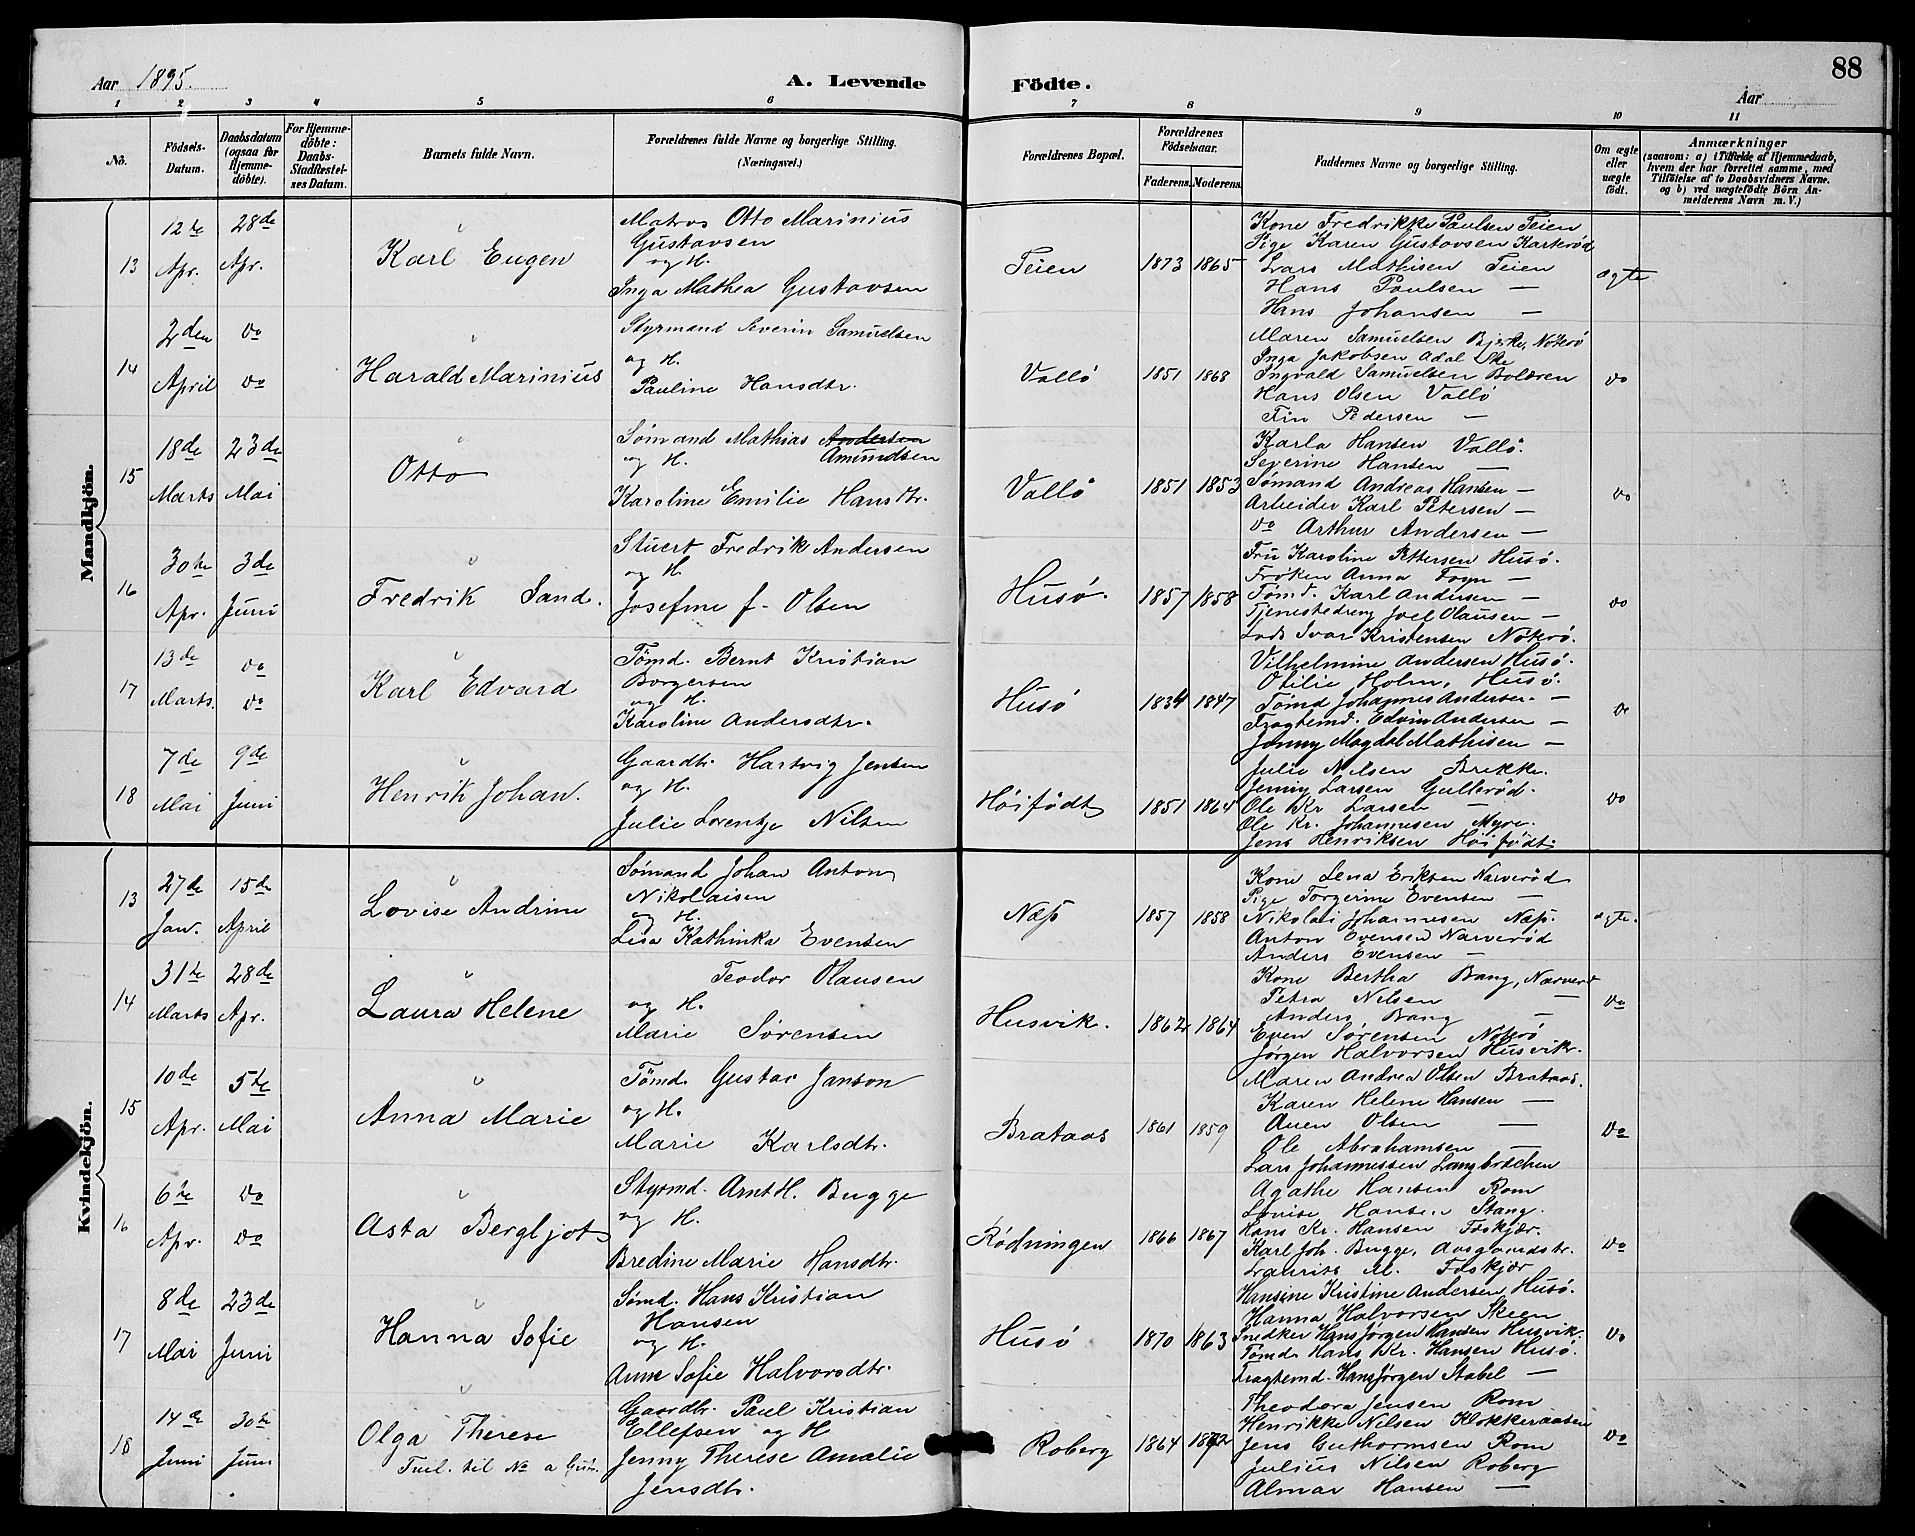 Aar 1895.
A. Levende Födte.
88
Aar
1 2 3 4 5 6 7 8 9 10 11
No.
Födsels-Datum.
Daabsdatum (ogsaa for Hjemme-döbte).
For Hjemme-döbte: Daabs-Stadfæstel-ses Datum.
Barnets fulde Navn.
Forældrenes fulde Navne og borgerlige Stilling. (Næringsvei.)
Forældrenes Bopæl.
Forældrenes Födselsaar.
Faderens. Moderens.
Faddernes Navne og borgerlige Stilling.
Om ægte eller uægte födt.
Anmærkninger
(saasom: a) i Tilfælde af Hjemmedaab,
hvem der har forrettet samme, med
Tilföielse af to Daabsvidners Navne,
og b) ved uægtefödte Börn An-
melderens Navn m. V.)
Mandkjön.
13
12te Apr.
28de Apr.
Karl Eugen
Matros Otto Marinius
Gustavsen
og H.
Inga Mathea Gustavsen
Teien
1873 1865
Kone Fredrikke Paulsen Teien
Pige Karen Gustavsen Karterød
Lars Mathisen Teien
Hans Paulsen —
Hans Johansen —
ægte
14
2den April
do do
Harald Marinius
Styrmand Severin Samuelsen
og H.
Pauline Hansdtr.
Vallö
1851 1868
Maren Samuelsen Bjerke, Nøterö
Inga Jakobsen Adal
Ingvald Samuelsen Bolæren
Hans Olsen Vallö
Fin Pedersen —
do
15
18de Marts
23de Mai
Otto
Sømand Mathias Andersen
og H. Amundsen
Karoline Emilie Hansdtr.
Vallö
1851 1853
Karla Hansen Vallö.
Severine Hansen —
Sømand Andreas Hansen —
Arbeider Karl Petersen —
do Arthur Andersen —
do
16
30te Apr.
3de Juni
Fredrik Sand.
Stuert Fredrik Andersen
og H.
Josefine f. Olsen
Husö.
1857 1858
Fru Karoline Pettersen Husö.
Frøken Anna Foyn —
Tømd. Karl Andersen —
Tjenestedreng Joel Olausen —
Lods Ivar Kristensen Nøterö.
do
17
13de Marts.
do do
Karl Edvard
Tømd. Bernt Kristian
Borgersen
og H.
Karoline Andersdtr.
Husö
1834 1847
Vilhelmine Andersen Husö.
Otilie Holm, Husö.
Tømd Johannes Andersen —
Fragtemd. Edvin Andersen —
Jenny Magdal Mathisen —
do
18
7de Mai
9de Juni
Henrik Johan.
Gaardbr. Hartvig Jensen
og H.
Julie Lorentze Nilsen
Höifödt
1851 1864
Julie Nilsen Brekke.
Jenny Larsen Gulleröd.
Ole Kr. Larsen —
Ole Kr. Johannesen Myre.
Jens Henriksen Höifödt
do
Kvindekjön.
13
27de Jan.
15de April
Lovise Andrine
Sømand Johan Anton
Nikolaisen
og H.
Lisa Kathinka Evensen
Næss
1857 1858
Kone Lena Eriksen Narveröd
Pige Torgerine Evensen —
Nikolai Johannesen Næss.
Anton Evensen Narveröd
Anders Evensen —
ægte.
14
31te Marts
28de Apr.
Laura Helene
Teodor Olausen
og H.
Marie Sörensen
Husvik.
1862 1864
Kone Bertha Bang, Narverö
Petra Nilsen —
Anders Bang —
Even Sörensen Nøterö
Jørgen Halvorsen Husvik.
do
15
10de Apr.
5te Mai
Anna Marie
Tømd. Gustav Janson
og H.
Marie Karlsdtr.
Brataas
1861 1859
Maren Andrea Olsen Brataas.
Karen Helene Hansen —
Auen Olsen —
Ole Abrahamsen —
Lars Johannessen Langbrækken
do
16
6te Apr.
do do
Asta Bergljot
Styrmd. Arnt H. Bugge
og H.
Bredine Marie Hansdtr.
Rödningen
1866 1867
Agathe Hansen Rom
Lovise Hansen Stang.
Hans Kr. Hansen Foskjær.
Karl Joh. Bugge, Aasgaardstr.
Laurits M. Foskjær
do
17
8de Mai
23de Juni
Hanna Sofie
Sømd. Hans Kristian
Hansen
og H.
Anne Sofie Halvorsdtr.
Husö
1870 1863
Hansine Kristine Andersen Husö.
Hanna Halvorsen Skeen
Snedker Hans Jørgen Hansen Husvik.
Tømd. Hans Kr. Hansen Husö.
Fragtemd. Hans Jørgen Stabel —
do
18
14de Juni
30te Juni
Olga Therese
Tvil. til No a
Gaardbr. Paul Kristian
Ellefsen og H
Jenny Therese Amalie
Jensdtr.
Roberg
1864 1872
Theodora Jensen Rom
Henrikke Nilsen Klokkeraasen
Jens Guthormsen Rom
Julius Nilsen Roberg
Almar Hansen —
do